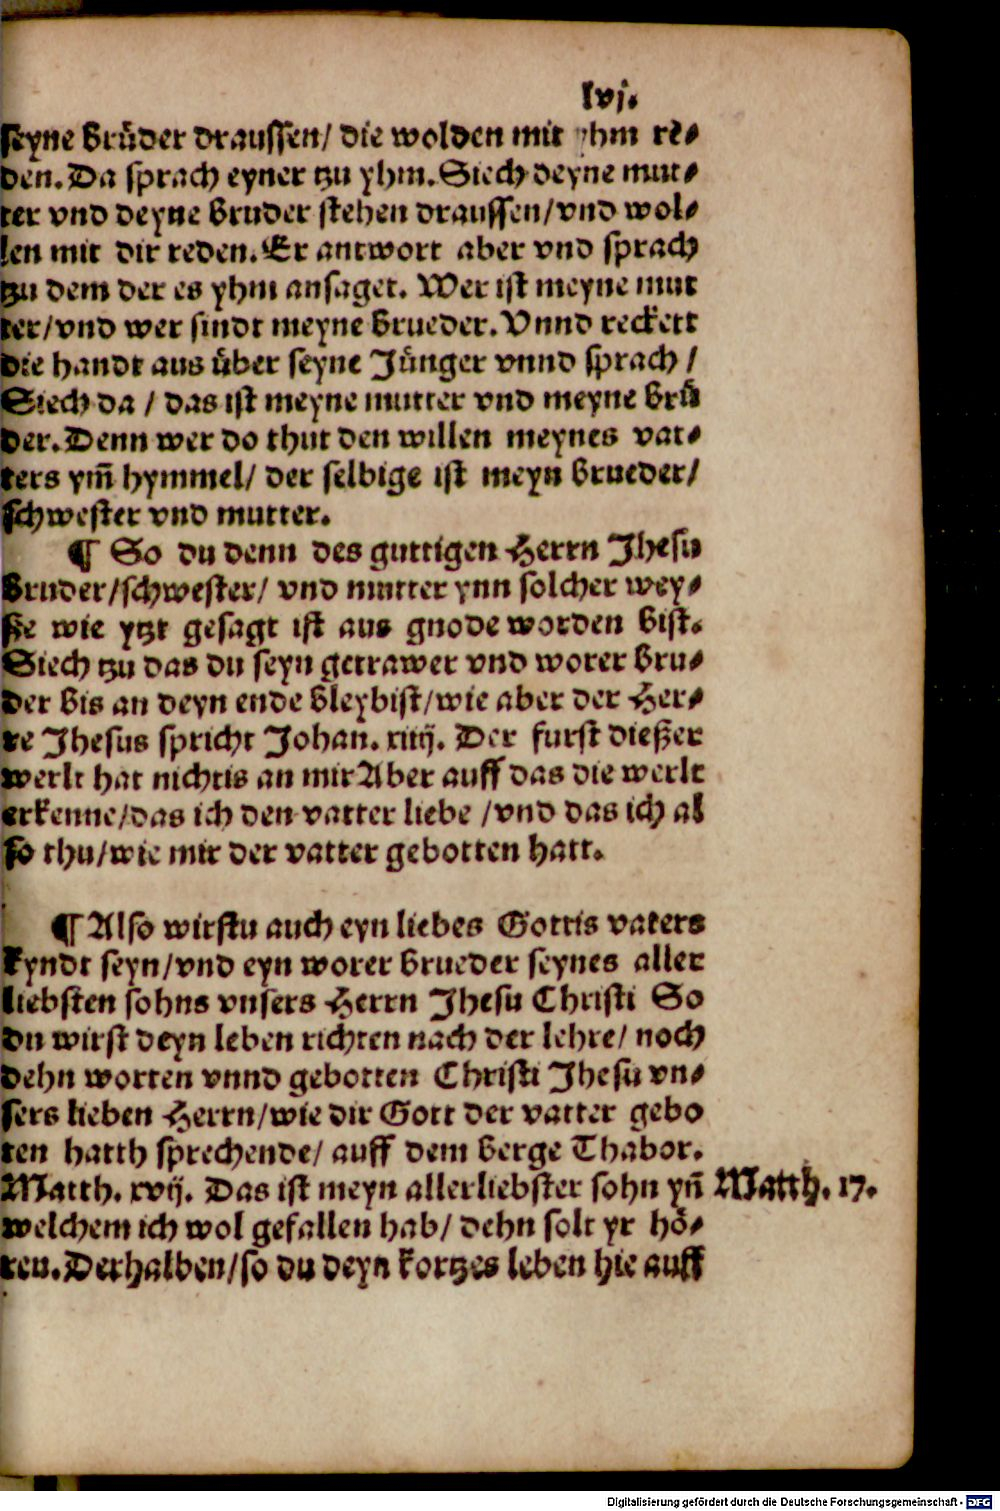 lvj.
seyne bruͤder draussen/ die wolden mit yhm re⸗
den. Da sprach eyner tzu yhm. Siech deyne mut⸗
ter vnd deyne bruder stehen draussen/vnd wol⸗
len mit dir reden. Er antwort aber vnd sprach
tzu dem der es yhm ansaget. Wer ist meyne mut
ter/vnd wer sindt meyne brueder. Vnnd reckett
die handt aus uͤber seyne Juͤnger vnnd sprach /
Siech da / das ist meyne mutter vnd meyne bruͤ
der. Denn wer do thut den willen meynes vat⸗
ters ym̃ hymmel/ der selbige ist meyn brueder/
schwester vnd mutter.
¶ So du denn des guttigen Herrn Jhesu
bruder/schwester/ vnd mutter ynn solcher wey⸗
ße wie ytzt gesagt ist aus gnode worden bist.
Siech tzu das du seyn getrawer vnd worer bru⸗
der bis an deyn ende bleybist/wie aber der Her⸗
re Jhesus spricht Johan. xiiij. Der furst dießer
werlt hat nichtis an mir Aber auff das die werlt
erkenne/das ich den vatter liebe /vnd das ich al
so thu/wie mir der vatter gebotten hatt.
¶ Also wirstu auch eyn liebes Gottis vaters
kyndt seyn/vnd eyn worer brueder seynes aller
liebsten sohns vnsers Herrn Jhesu Christi So
du wirst deyn leben richten nach der lehre/ noch
dehn worten vnnd gebotten Christi Jhesu vn⸗
sers lieben Herrn/wie dir Gott der vatter gebo
ten hatth sprechende/ auff dem berge Thabor.
Matth. xvij. Das ist meyn allerliebster sohn yñ Matth. 17.
welchem ich wol gefallen hab/ dehn solt yr hoͤ⸗
ren. Derhalben/so du deyn kortzes leben hie auff
Digitalisierung gefördert durch die Deutsche Forschungsgemeinschaft - DFG